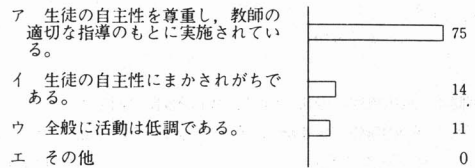 ア 生徒の自主性を尊重し，教師の 適切な指導のもとに実施されてい る。 75
イ 生徒の自主性にまかされがちで ある。 14
ウ 全般に活動は低調である。 11
エ その他 0